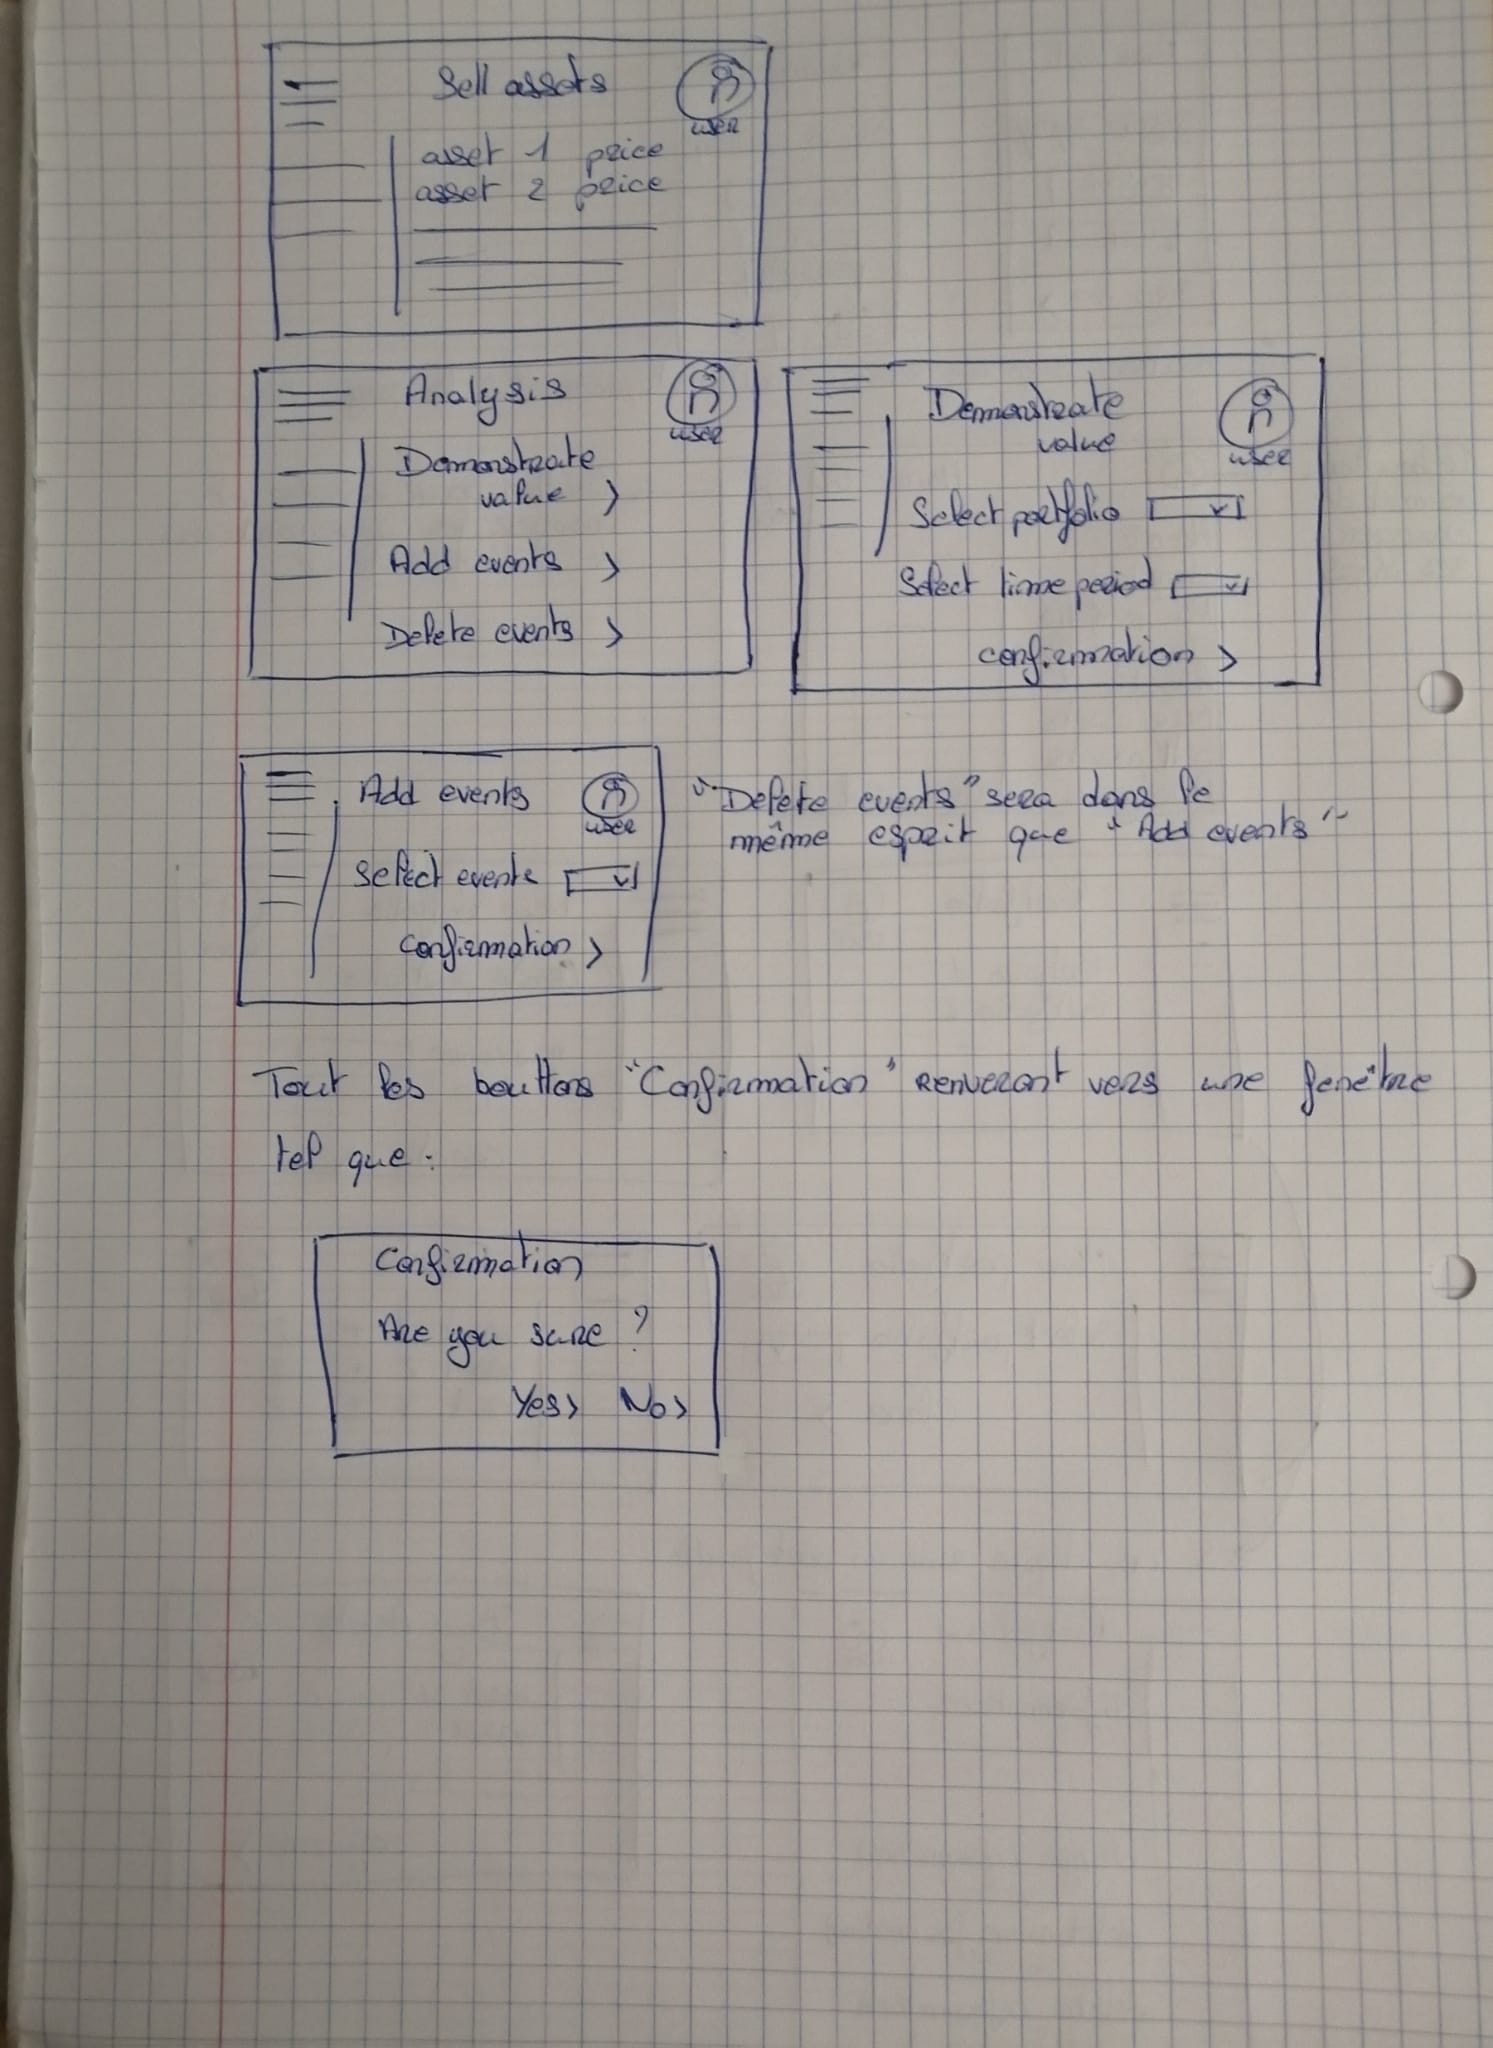 Sell assets
user
asset 1 price
asset 2 price
Analysis
user
Demonstrate
value >
Add events >
Delete events >
Demonstrate
value
user
Select portfolio
Select time period
confirmation >
Add events
user
Select events
Confirmation >
"Delete events" sera dans le
même esprit que "Add events"
Tout les bouttons "Confirmation" renveront vers une fenêtre
tel que :
Confirmation
Are you sure ?
Yes> No>